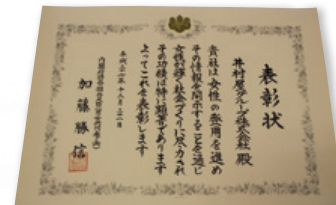 表彰状
井村屋グループ株式会社 殿
貴社は女性の登用を進め
その情報を開示することを通じ
女性が輝く社会づくりに尽力され
その功績は特に顕著であります
よってこれを表彰します
平成二十八年十二月二十一日
加藤勝信